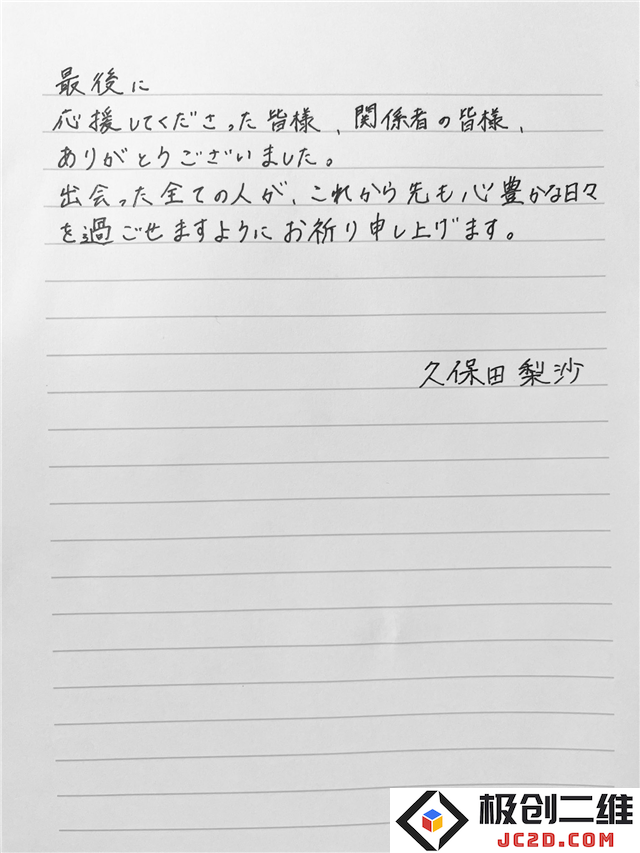 最後に
応援してくださった皆様、関係者の皆様、
ありがとうございました。
出会った全ての人が、これから先も心豊かな日々
を過ごせますようにお祈り申し上げます。
久保田梨沙
极创二维
JC2D.COM